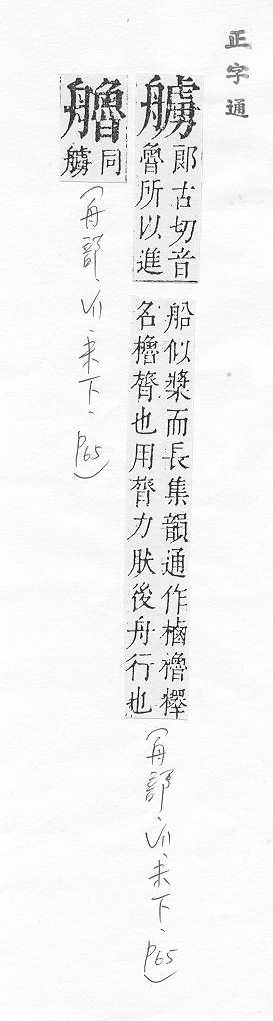 正字通
艣
郎古切音
魯所以進
船似槳而長集韻通作樐櫓釋
名櫓膂也用膂力肰後舟行也
(舟部, 未下, P65)
艪
同
艣
(舟部, 未下, P65)